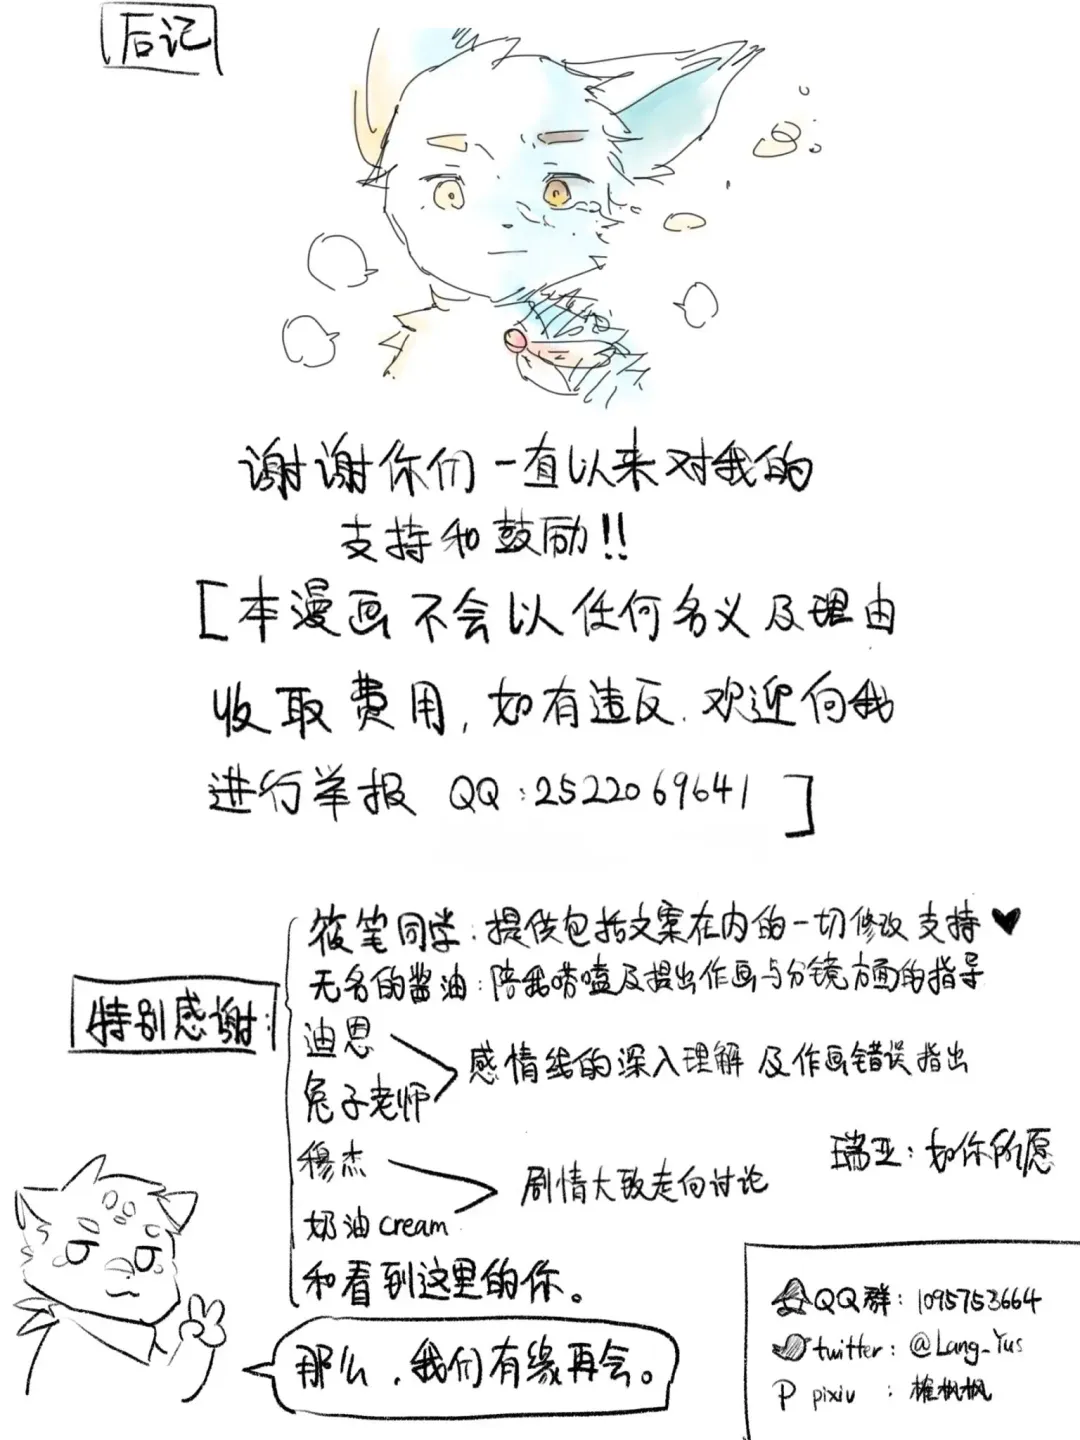 后记
谢谢你们一直以来对我的
支持和鼓励!!
[本漫画不会以任何名义及理由
收取费用,如有违反.欢迎向我
进行举报 QQ:2522069641]
特别感谢:
筱笔同学:提供包括文案在内的一切修改支持♥
无名的酱油:陪我唠嗑及提出作画与分镜方面的指导
迪恩
兔子老师
感情线的深入理解及作画错误指出
穆杰
奶油cream
剧情大致走向讨论
瑞亚:如你所愿
和看到这里的你。
那么,我们有缘再会。
QQ群:1095753664
twitter:@Lang_Yus
P pixiv :枫枫